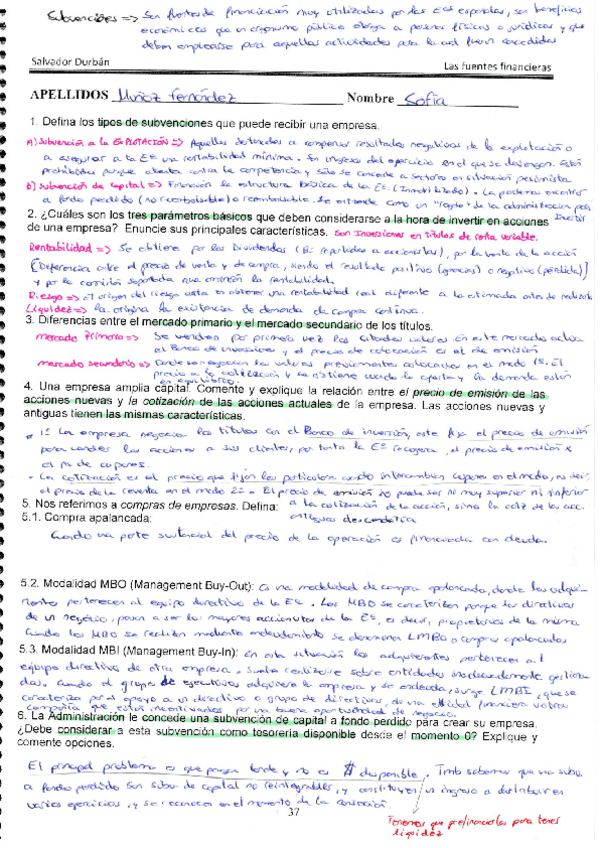 Subvenciones => Son fuentes de financiación muy utilizadas por las Eªs españolas, son beneficios
económicos que un organismo público otorga a personas físicas o jurídicas y que
deben emplearse para aquellas actividades para la cual fueron concedidas
Salvador Durbán Las fuentes financieras
APELLIDOS Muñoz Fernández Nombre Sofía
1. Defina los tipos de subvenciones que puede recibir una empresa.
A) Subvención a la EXPLOTACIÓN => Aquellas destinadas a compensar resultados negativos de la explotación o
a asegurar a la Eª una rentabilidad mínima. Son ingresos del ejercicio en el que se devengan. Están
prohibidas porque atentan contra la competencia y sólo se concede a sectores en situación
b) Subvención de Capital => Financian la estructura básica de la Eª (Inmovilizado). La podemos encontrar
a fondo perdido (no reembolsable) o reembolsable. Se entiende como un "regalo" de la administración por
invertir
2. ¿Cuáles son los tres parámetros básicos que deben considerarse a la hora de invertir en acciones
de una empresa? Enuncie sus principales características. Son Inversiones en títulos de renta variable.
Rentabilidad => Se obtiene por los Dividendos (Bº repartidos a accionistas), por la venta de la acción
[Diferencia entre el precio de venta y de compra, siendo el resultado positivo (ganancias) o negativo (pérdida)]
y por la
Riesgo => El origen del riesgo está en obtener una rentabilidad real diferente a la estimada antes de
Liquidez => la origina la existencia de demanda de compra continua.
3. Diferencias entre el mercado primario y el mercado secundario de los títulos.
mercado Primario => Se venden por primera vez los valores en este mercado actúa
el Banco de inversiones y el precio de colocación es el de emisión
mercado secundario => Donde se negocian los valores previamente colocados en el mdo 1º. El
precio es la cotización y se obtiene cuando la oferta y la demanda están
en equilibrio.
4. Una empresa amplia capital. Comente y explique la relación entre el precio de emisión de las
acciones nuevas y la cotización de las acciones actuales de la empresa. Las acciones nuevas y
antiguas tienen las mismas características.
- 1º La empresa negocia los títulos con el Banco de inversión, este fija el precio de emisión
para vender las acciones a sus clientes, por tanto la Eª recogerá, el precio de emisión x
el nº de
- La cotización es el precio que fijan los particulares cuando intercambian en el mdo, es decir,
el precio de la reventa en el mdo 2º - El precio de emisión no puede ser ni muy superior ni inferior
a la cotización de la acción, sino la cotiz de las acc.
antiguas descendería
5. Nos referimos a compras de empresas. Defina:
5.1. Compra apalancada:
Cuando una parte sustancial del precio de la operación es financiada con deudas
5.2. Modalidad MBO (Management Buy-Out): Es una modalidad de compra apalancada, donde los adqui-
rientes pertenecen al equipo directivo de la Eª. Los MBO se caracterizan porque los directivos
de un negocio, pasan a ser los mayores accionistas de la Eª, es decir, propietarios de la misma
Cuando los MBO se realizan mediante endeudamiento se denominan LMBO o compras apalancadas
5.3. Modalidad MBI (Management Buy-In): En esta situación los adquirientes pertenecen al
equipo directivo de otra empresa, suele realizarse sobre entidades inadecuadamente gestiona-
das. Cuando el grupo de ejecutivos adquiere la empresa y se endeuda, surge LMBI, que se
caracteriza por el apoyo a un directivo o grupo de directivos, de una entidad financiera u otra
compañía que están incentivados por una buena oportunidad de negocio.
6. La Administración le concede una subvención de capital a fondo perdido para crear su empresa.
¿Debe considerar a esta subvención como tesorería disponible desde el momento 0? Explique y
comente opciones.
El principal problema es que pagan tarde y no es # disponible. Tmb sabemos que una subv.
a fondo perdido son subv. de capital no reintegrables, y constituyen un ingreso a distribuir en
varios ejercicios, y se reconocen en el momento de la concesión.
37
Tenemos que prefinanciarlas para tener
liquidez